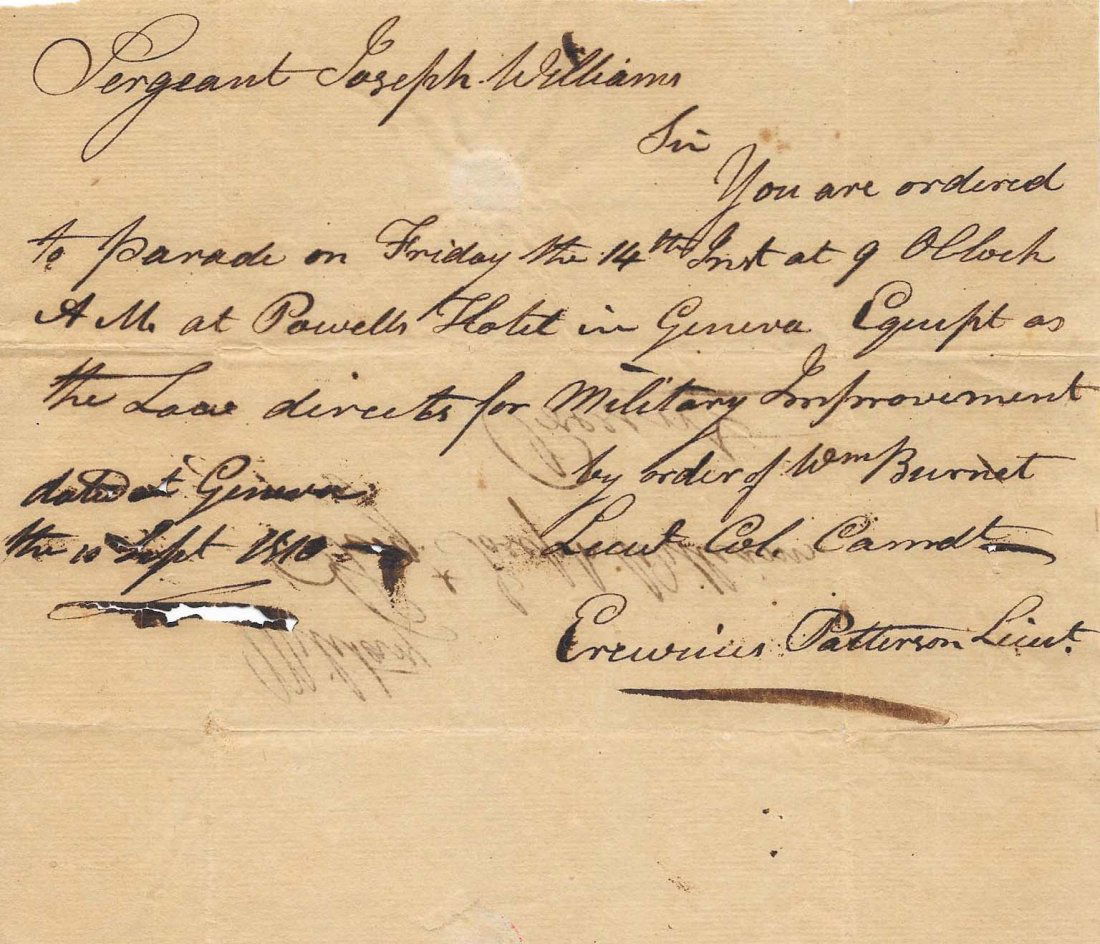 Sergeant Joseph Williams
Sir
You are ordered
to parade on Friday the 14th Inst at 9 OClock
A M. at Powells Hotel in Geneva Equipt as
the Law directs for Military Improvement
by order of Wm Burnet
dated at Geneva
the 10 Sept 1810
Lieut Col. Comdt
Patterson Lieut.